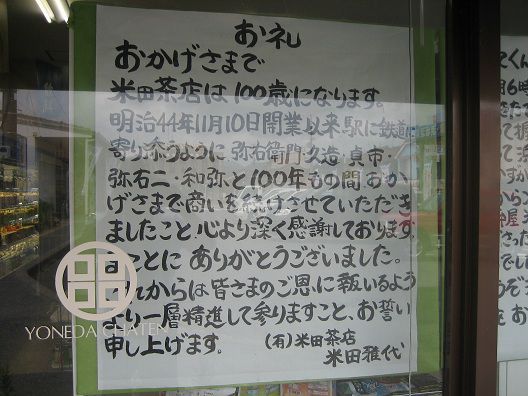 お礼
おかげさまで
米田茶店は100歳になります。
明治44年11月10日開業以来駅に鉄道に
寄り添うように 弥右衛門・久造・貞市・
弥右二・和弥と100年もの間おか
げさまで商いを続けさせていただき
ましたこと心より深く感謝しております。
まことに ありがとうございました。
これからは皆さまのご恩に報いるよう
より一層精進して参りますこと、お誓い
申し上げます。 (有)米田茶店
米田雅代
YONEDA CHATEN